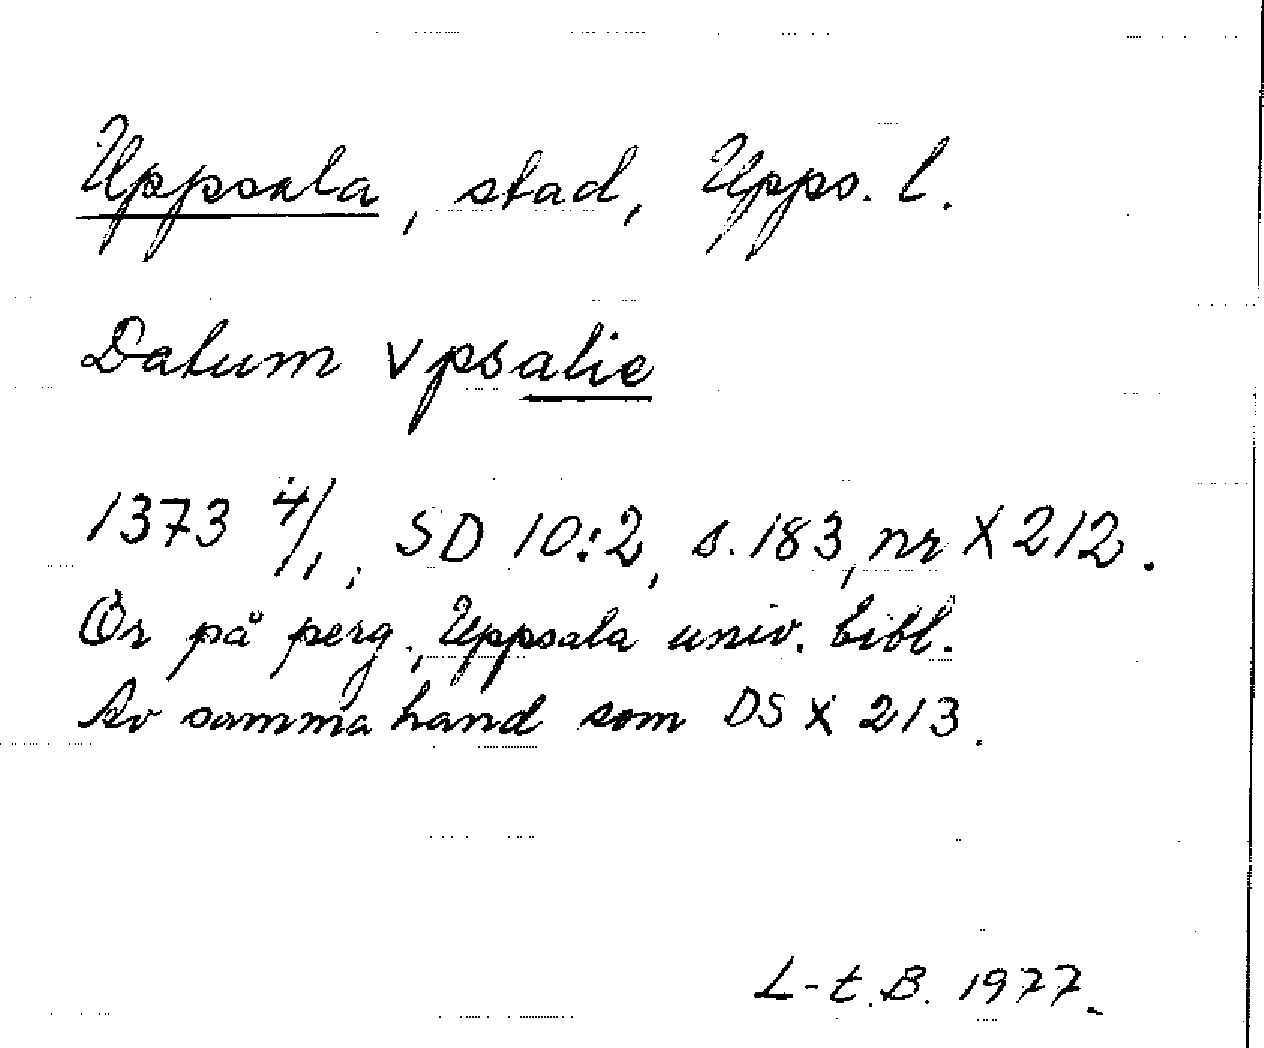 Uppsala, stad, Upps. l.
Datum vpsalie
1373 4/1, SD 10:2, s. 183, nr X 212.
Or på perg., Uppsala univ. bibl.
Av samma hand som DS X 213.
L-t. B. 1977.